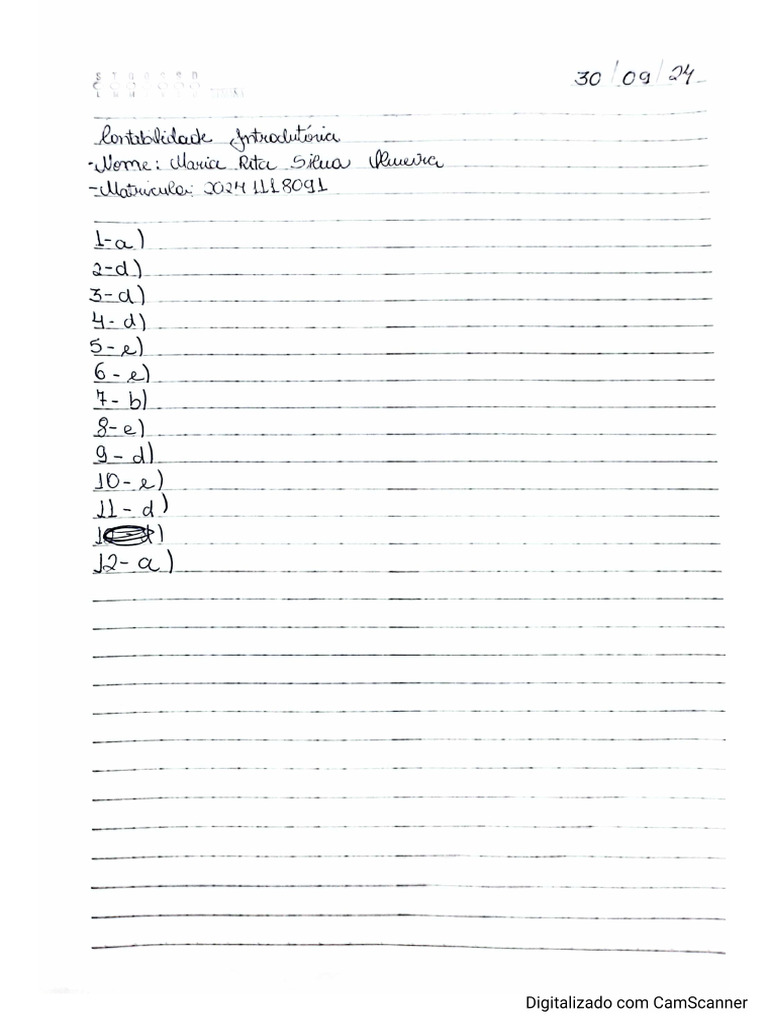 30/09/24
Contabilidade Introdutória
-Nome: Maria Rita Silva
-Matricula: 20241118091
1-a)
2-d)
3-d)
4-d)
5-e)
6-e)
7-b)
8-e)
9-d)
10-e)
11-d)
12-a)
Digitalizado com CamScanner